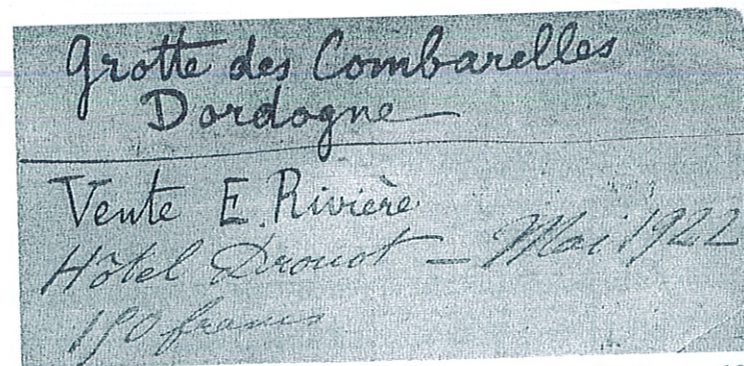 Grotte des Combarelles
Dordogne
Vente E. Rivière
Hôtel Drouot – Mai 1922
francs